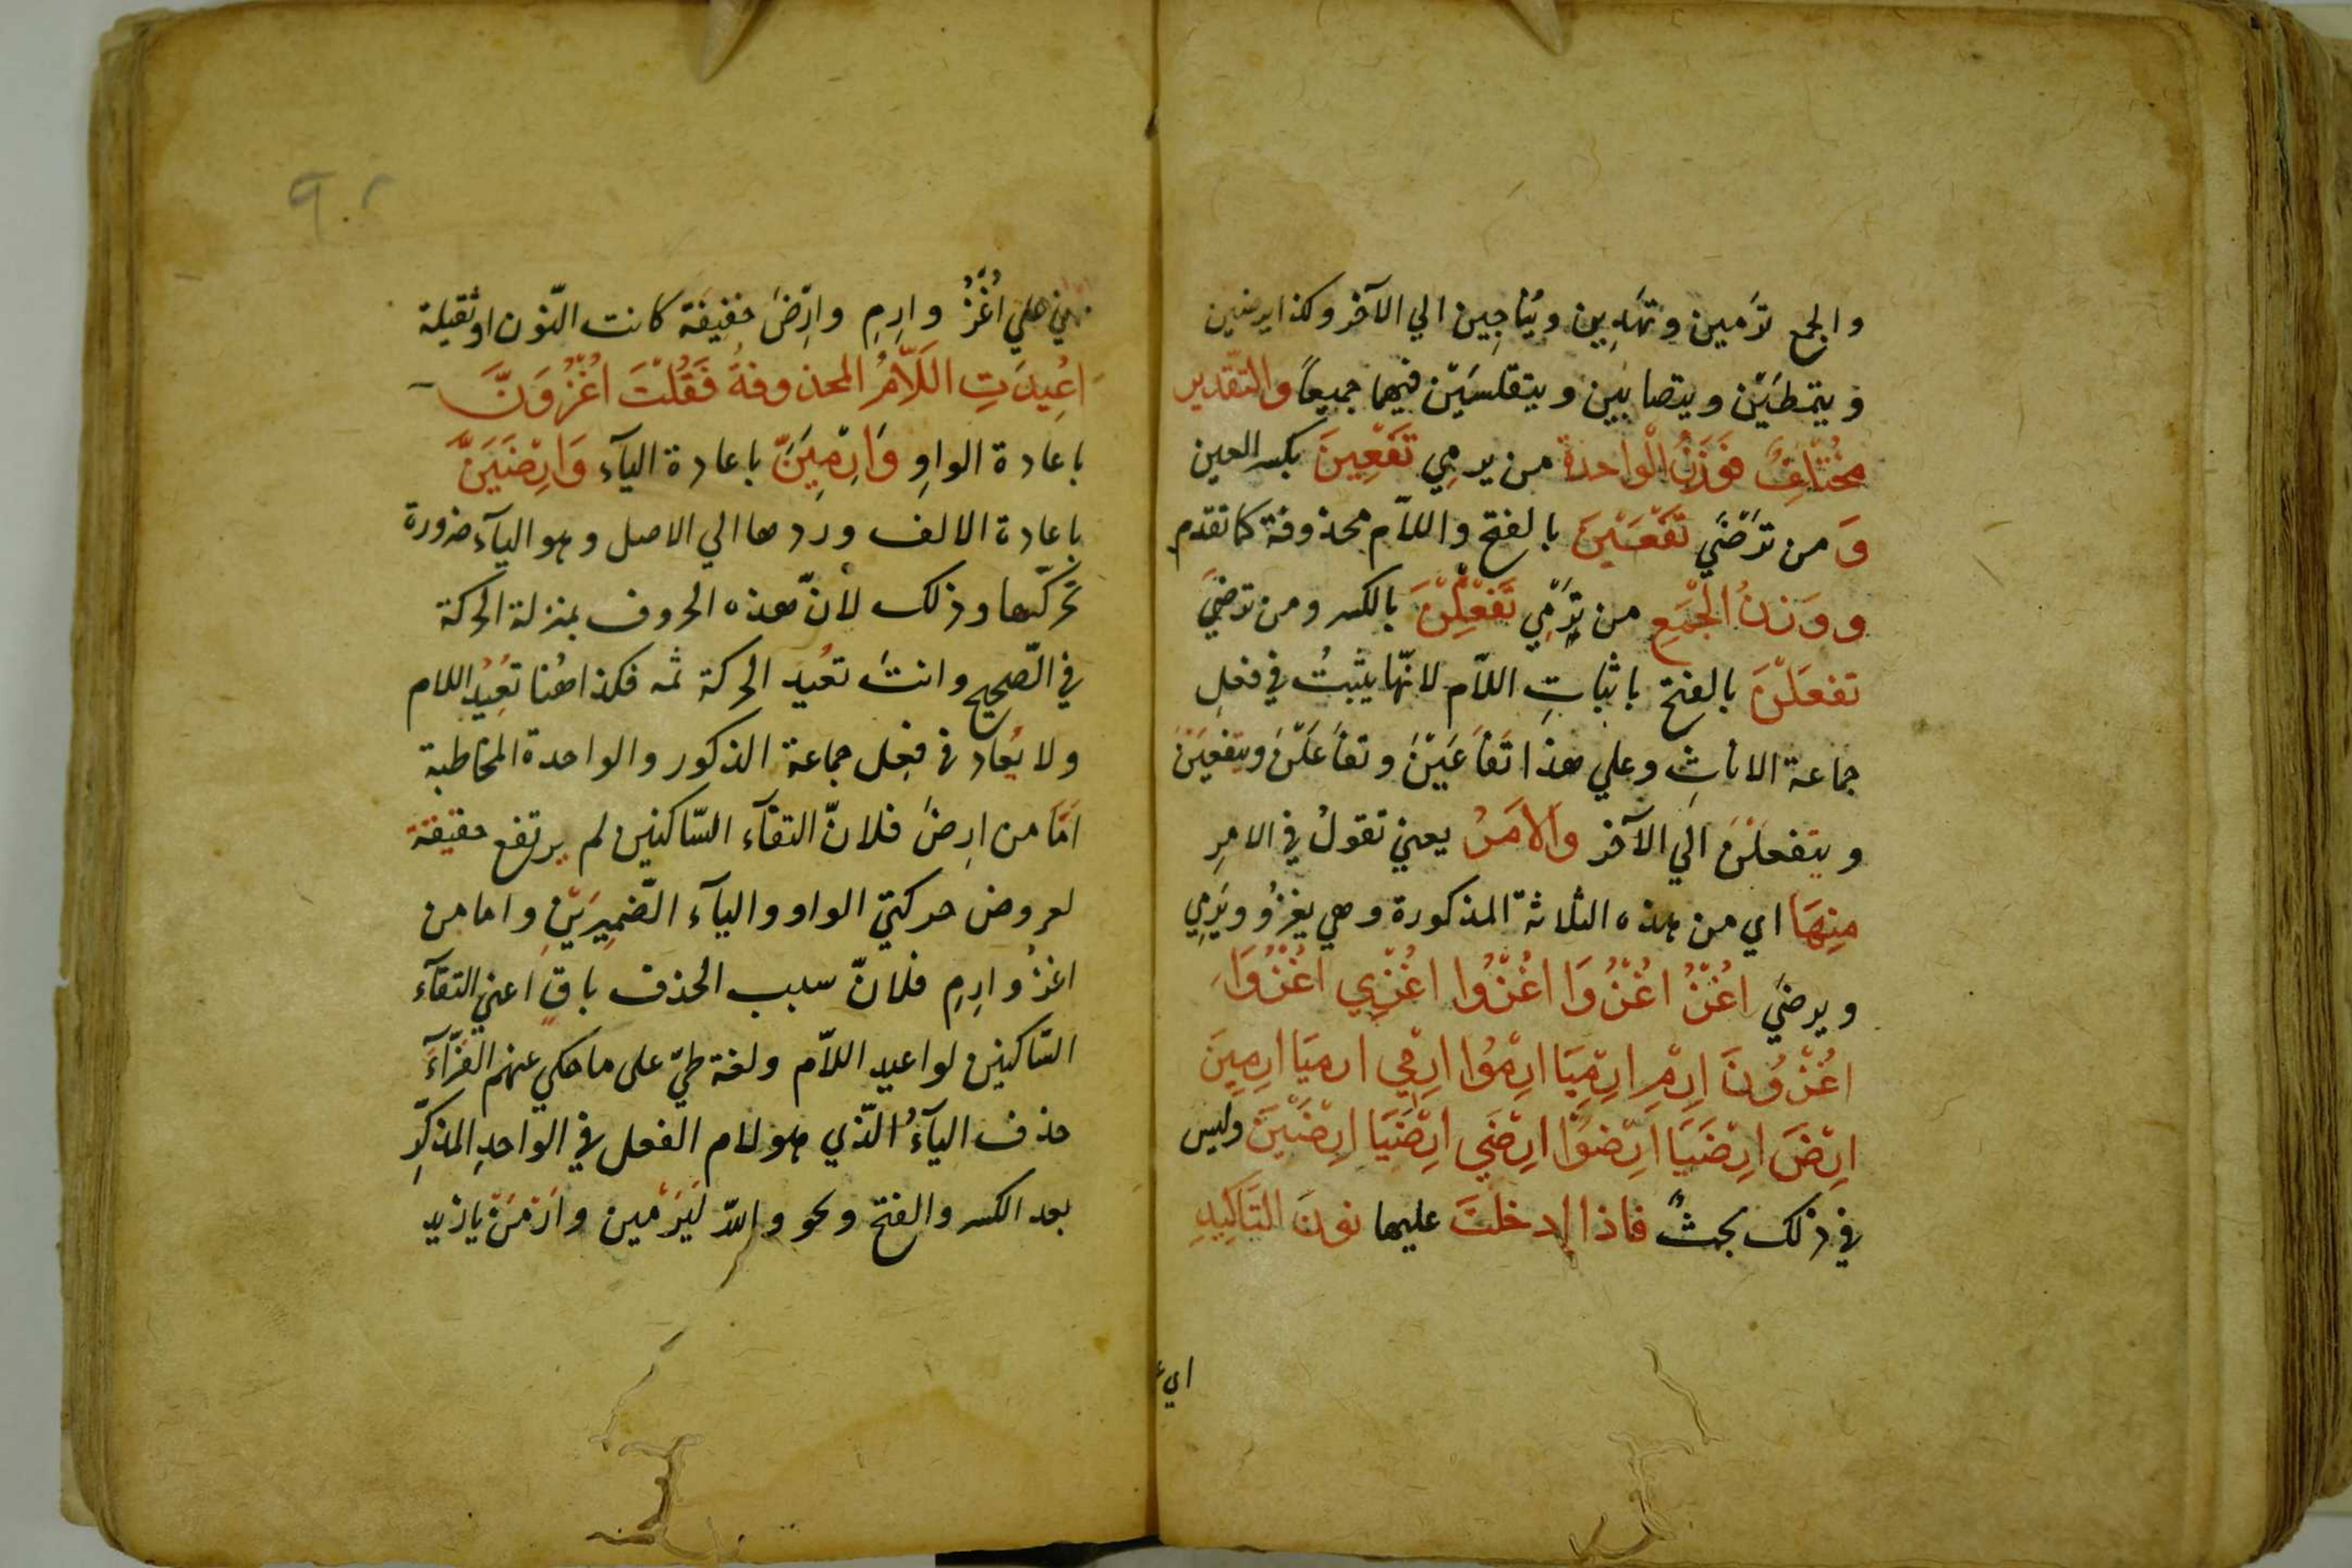 والجمع ترمين وتهدين ويناجين الي الآخر وكذا يرضين
ويتمطيْن ويتصابين ويتقلسيْن فيهما جميعاً والتّقدير
مختلفٌ فوزنُ الواحدة من يرمِي تَفْعِينَ بكسر العين
وَ من ترْضَي تَفْعَيْنَ بالفتح واللاّم محذوفة كما تقدم
ووَزنُ الْجَمْعِ من ترْمِي تَفْعِلْنَ بالكسر ومن ترضيَ
تفعَلْنَ بالفتح باثباتِ اللاّم لانّها يثبتُ في فعلِ
جماعة الاناثِ وعلي هذا تَفَاعَيْنَ وتفَاعَلْنَ ويتفعيْنَ
ويتفعلْنَ الي الآخر والامرُ يعني تقولُ في الامرِ
مِنهَا اي من هذه الثلاثة المذكورة وهي يغزُو ويَرمِي
ويرضيَ اُغْزُ اُغْزُوَا اُغْزُوا اُغْزِي اُغْزُوَا
اُغْزُونَ اِرْمِ اِرْمِيَا اِرْمُوا اِرْمِي ارميَا ارمِينَ
اِرْضَ اِرْضَيَا اِرْضَوْا اِرْضَي اِرْضَيَا اِرْضَيْنَ وليس
في ذلك بحثٌ فاذا ادخلتَ عليها نونَ التّاكِيدِ
اي
٩٠٢
علي اُغْزُ وارمِ وارْضَ خفيفة كانت النّون او ثقيلة
اُعِيدَتِ اللَّامُ المحذوفةُ فَقُلْتَ اُغْزُوَنَّ
باعادة الواوِ وَاِرْمِيَنَّ باعادة اليآء وَاِرْضَيَنَّ
باعادة الالف وردها الي الاصل وهو اليآء ضرورة
تحرّكها وذلك لأنّ هذه الحروف بمنزلة الحركة
في الصّحيح وانت تعُيد الحركة ثمه فكذا هُنا تعُيدُ اللام
ولا يُعاد في فعِل جماعة الذكور والواحدة المخاطبة
امّا من ارضَ فلانّ التقآء السّاكنين لم يرتفع حقيقة
لعروض حركتي الواو واليآء الضّميرَيْنِ واما من
اغزُ وارمِ فلانّ سبب الحذف باقٍ اعني التقآء
السّاكنين لو اعيد اللاّم ولغة طيّ على ما حكي عنهم الفرّآء
حذف اليآءُ الّذي هو لام الفعل في الواحدِ المذكّرِ
بعد الكسر والفتح ونحو والله لَيَرْمين وارْمَنْ يا زيد